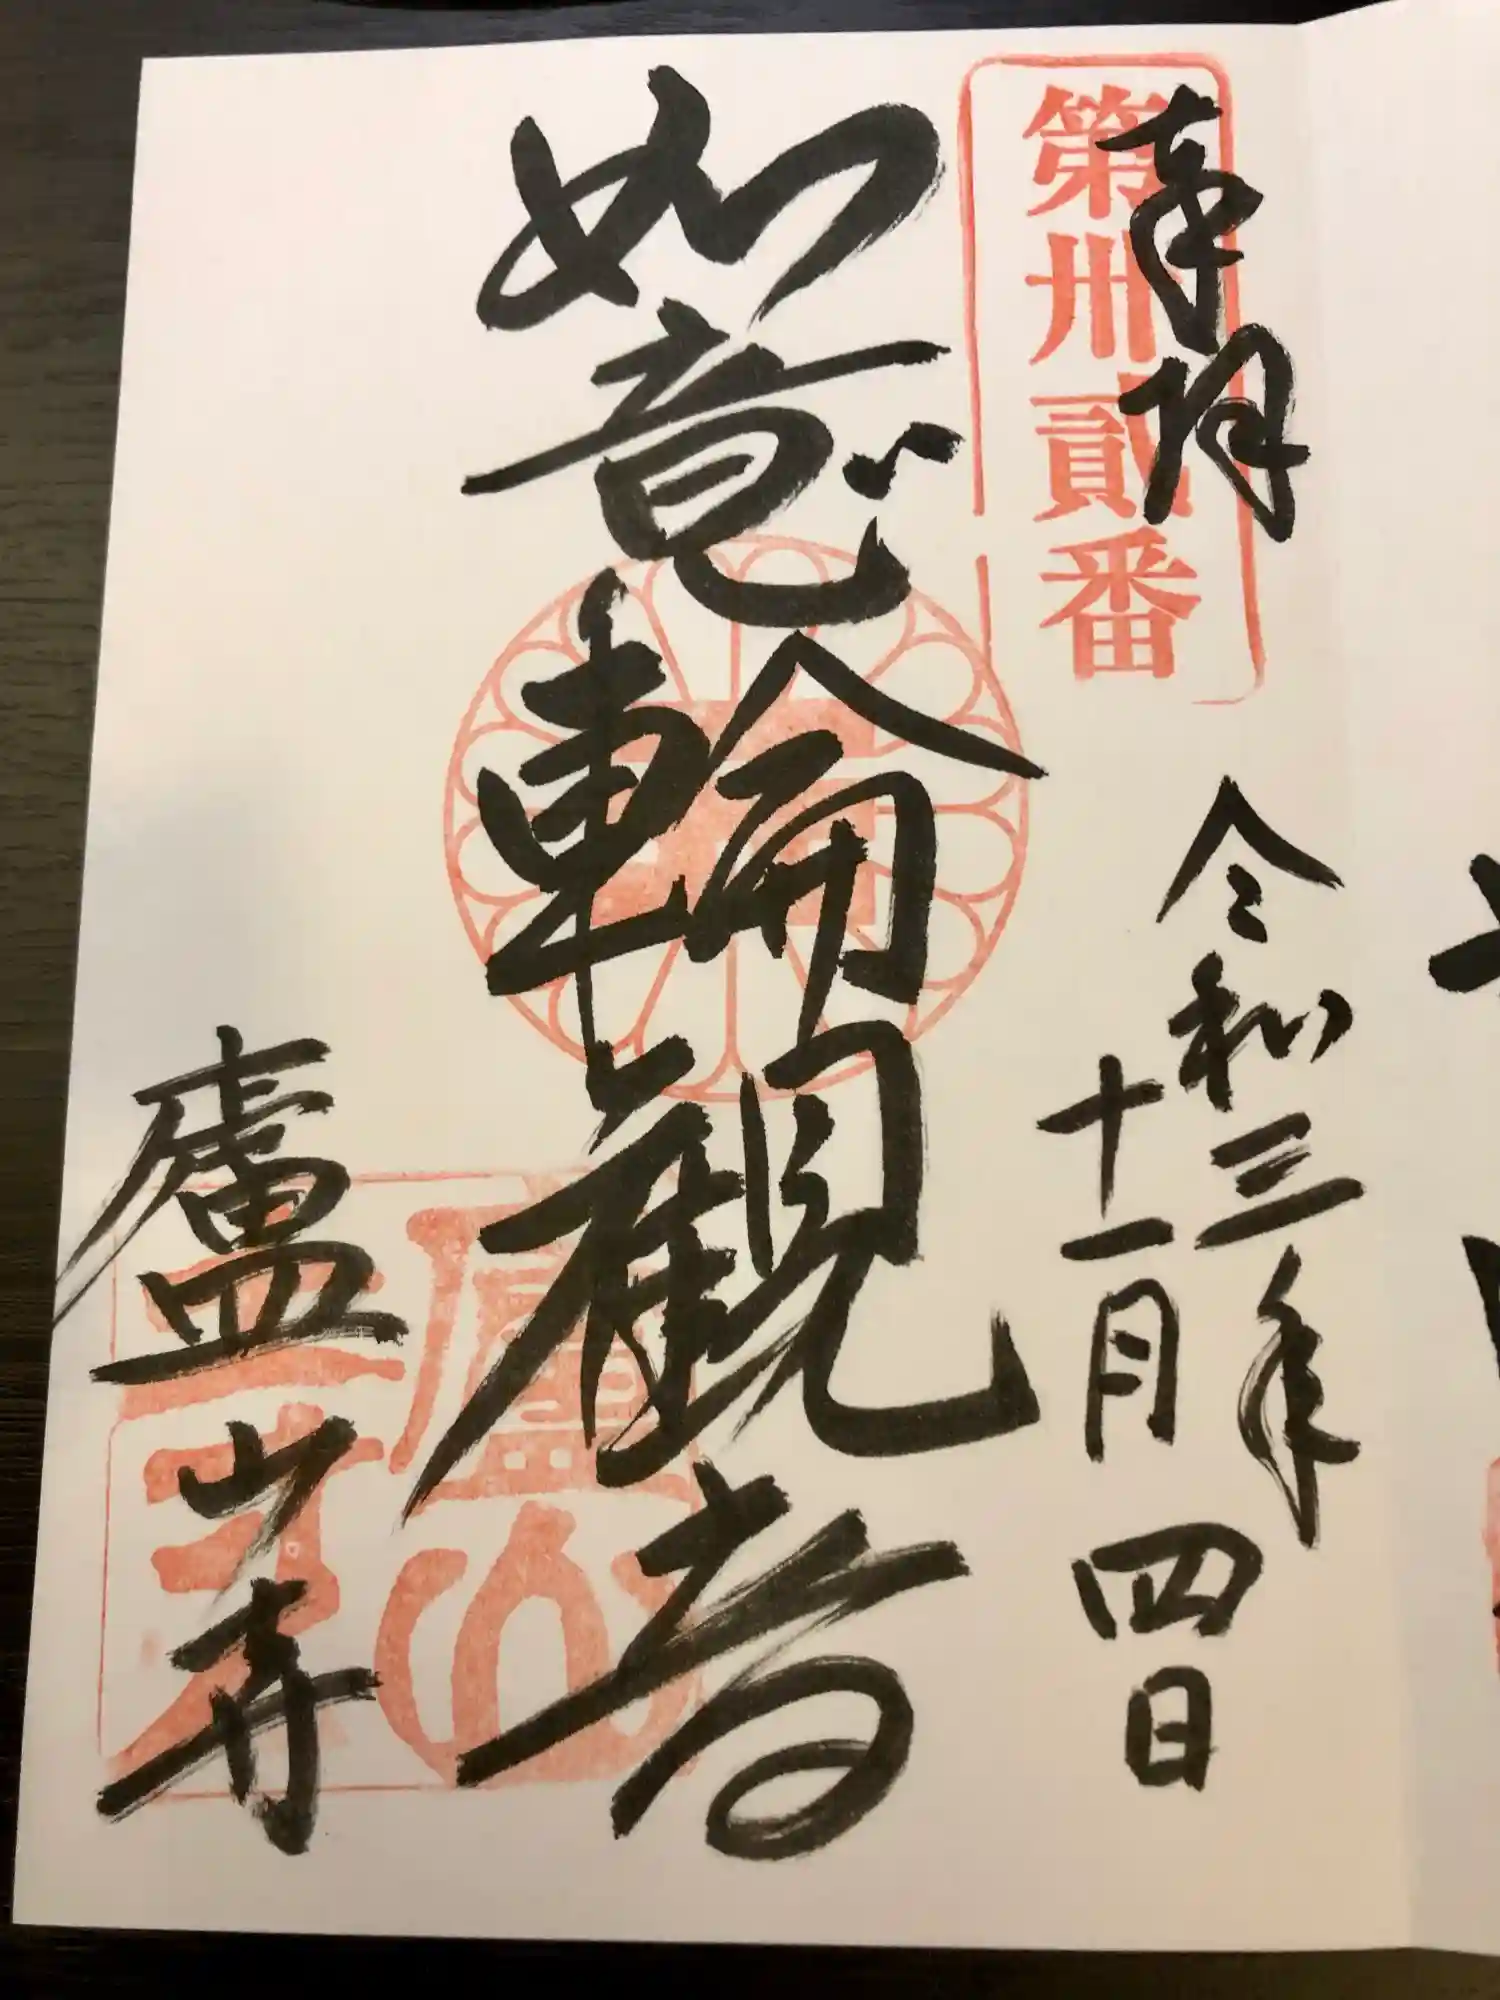 奉拝
第卅貳番
令和三年
十一月四日
如意輪観音
廬山寺
廬山寺